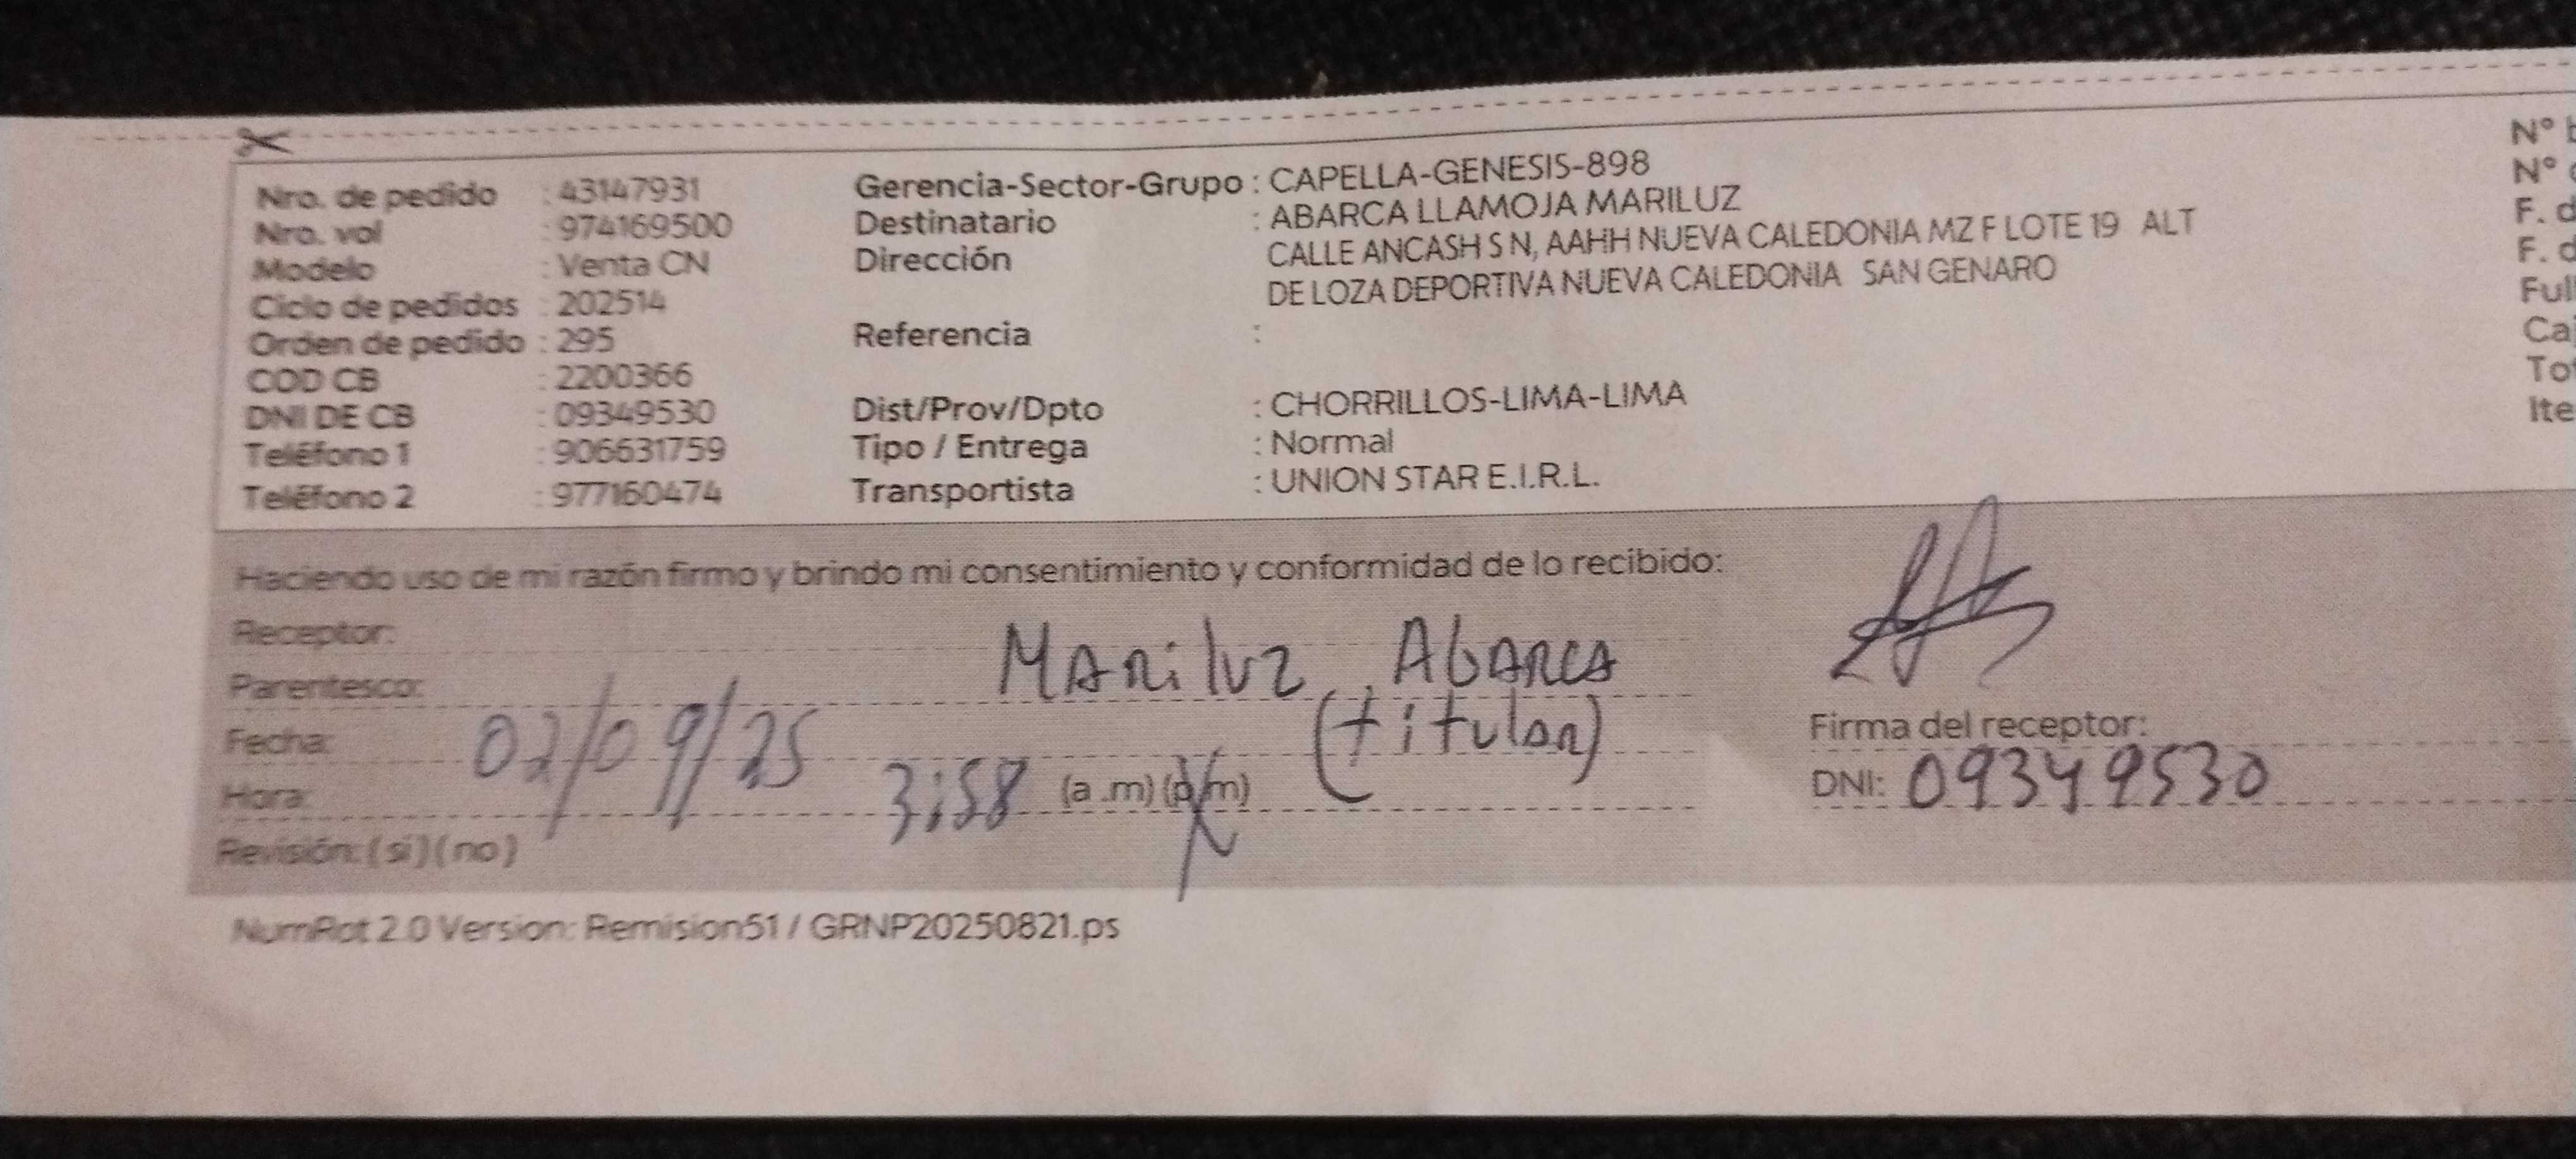 Nro. de pedido : 43147931 Gerencia-Sector-Grupo : CAPELLA-GENESIS-898
Nro. vol : 974169500 Destinatario : ABARCA LLAMOJA MARILUZ
Modelo : Venta CN Dirección CALLE ANCASH S N, AAHH NUEVA CALEDONIA MZ F LOTE 19 ALT
Ciclo de pedidos : 202514 DE LOZA DEPORTIVA NUEVA CALEDONIA SAN GENARO
Orden de pedido : 295 Referencia :
COD CB : 2200366
DNI DE CB : 09349530 Dist/Prov/Dpto : CHORRILLOS-LIMA-LIMA
Teléfono 1 : 906631759 Tipo / Entrega : Normal
Teléfono 2 : 977160474 Transportista : UNION STAR E.I.R.L.
N°
N°
F. d
F. d
Full
Caj
Tot
Ite
Haciendo uso de mi razón firmo y brindo mi consentimiento y conformidad de lo recibido:
Receptor: Mariluz Abarca
Parentesco: (titular)
Fecha: 02/09/25
Hora: 3:58 (a .m) (p.m)
Revisión: ( si ) ( no )
Firma del receptor:
DNI: 09349530
NumRot 2.0 Version: Remision51 / GRNP20250821.ps